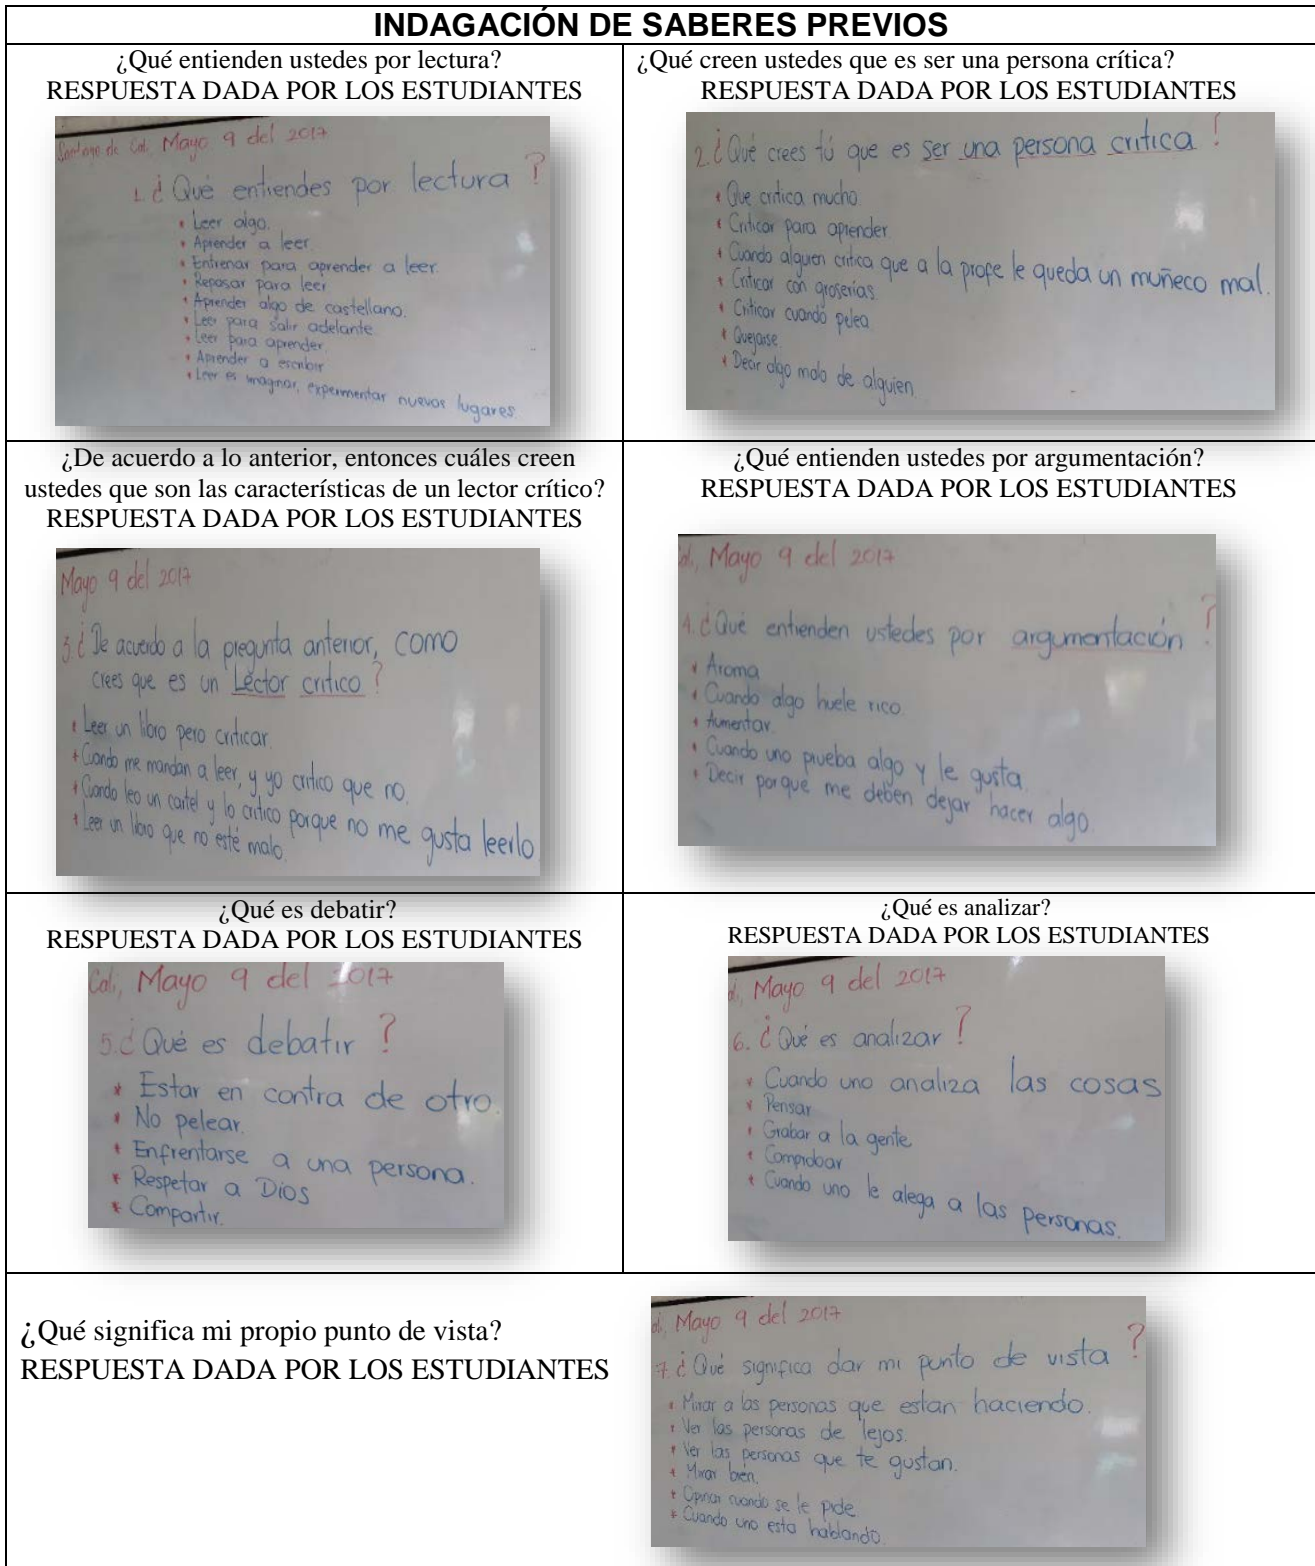 INDAGACIÓN DE SABERES PREVIOS
¿Qué entienden ustedes por lectura?
RESPUESTA DADA POR LOS ESTUDIANTES
Santiago de Cali, Mayo 9 del 2017
1. ¿Qué entiendes por lectura?
* Leer algo.
* Aprender a leer.
* Entrenar para aprender a leer.
* Repasar para leer
* Aprender algo de castellano.
* Leer para salir adelante.
* Leer para aprender.
* Aprender a escribir
* Leer es imaginar, experimentar nuevos lugares.
¿Qué creen ustedes que es ser una persona crítica?
RESPUESTA DADA POR LOS ESTUDIANTES
2. ¿Qué crees tú que es ser una persona critica?
* Que critica mucho.
* Criticar para aprender.
* Cuando alguien critica que a la profe le queda un muñeco mal.
* Criticar con groserías.
* Criticar cuando pelea
* Quejarse.
* Decir algo malo de alguien.
¿De acuerdo a lo anterior, entonces cuáles creen
ustedes que son las características de un lector crítico?
RESPUESTA DADA POR LOS ESTUDIANTES
Mayo 9 del 2017
3. ¿De acuerdo a la pregunta anterior, como
crees que es un Lector critico?
* Leer un libro pero criticar.
* Cuando me mandan a leer, y yo critico que no.
* Cuando leo un cartel y lo critico porque no me gusta leerlo
* Leer un libro que no esté malo.
¿Qué entienden ustedes por argumentación?
RESPUESTA DADA POR LOS ESTUDIANTES
Mayo 9 del 2017
4. ¿Qué entienden ustedes por argumentación?
* Aroma
* Cuando algo huele rico.
* Aumentar.
* Cuando uno prueba algo y le gusta.
* Decir porque me deben dejar hacer algo.
¿Qué es debatir?
RESPUESTA DADA POR LOS ESTUDIANTES
Cali, Mayo 9 del 2017
5. ¿Qué es debatir?
* Estar en contra de otro.
* No pelear.
* Enfrentarse a una persona.
* Respetar a Dios
* Compartir.
¿Qué es analizar?
RESPUESTA DADA POR LOS ESTUDIANTES
Mayo 9 del 2017
6. ¿Qué es analizar?
* Cuando uno analiza las cosas
* Pensar
* Grabar a la gente
* Comprobar
* Cuando uno le alega a las personas.
¿Qué significa mi propio punto de vista?
RESPUESTA DADA POR LOS ESTUDIANTES
Mayo 9 del 2017
7. ¿Qué significa dar mi punto de vista?
* Mirar a las personas que estan haciendo.
* Ver las personas de lejos.
* Ver las personas que te gustan.
* Mirar bien.
* Opinar cuando se le pide
* Cuando uno esta hablando.